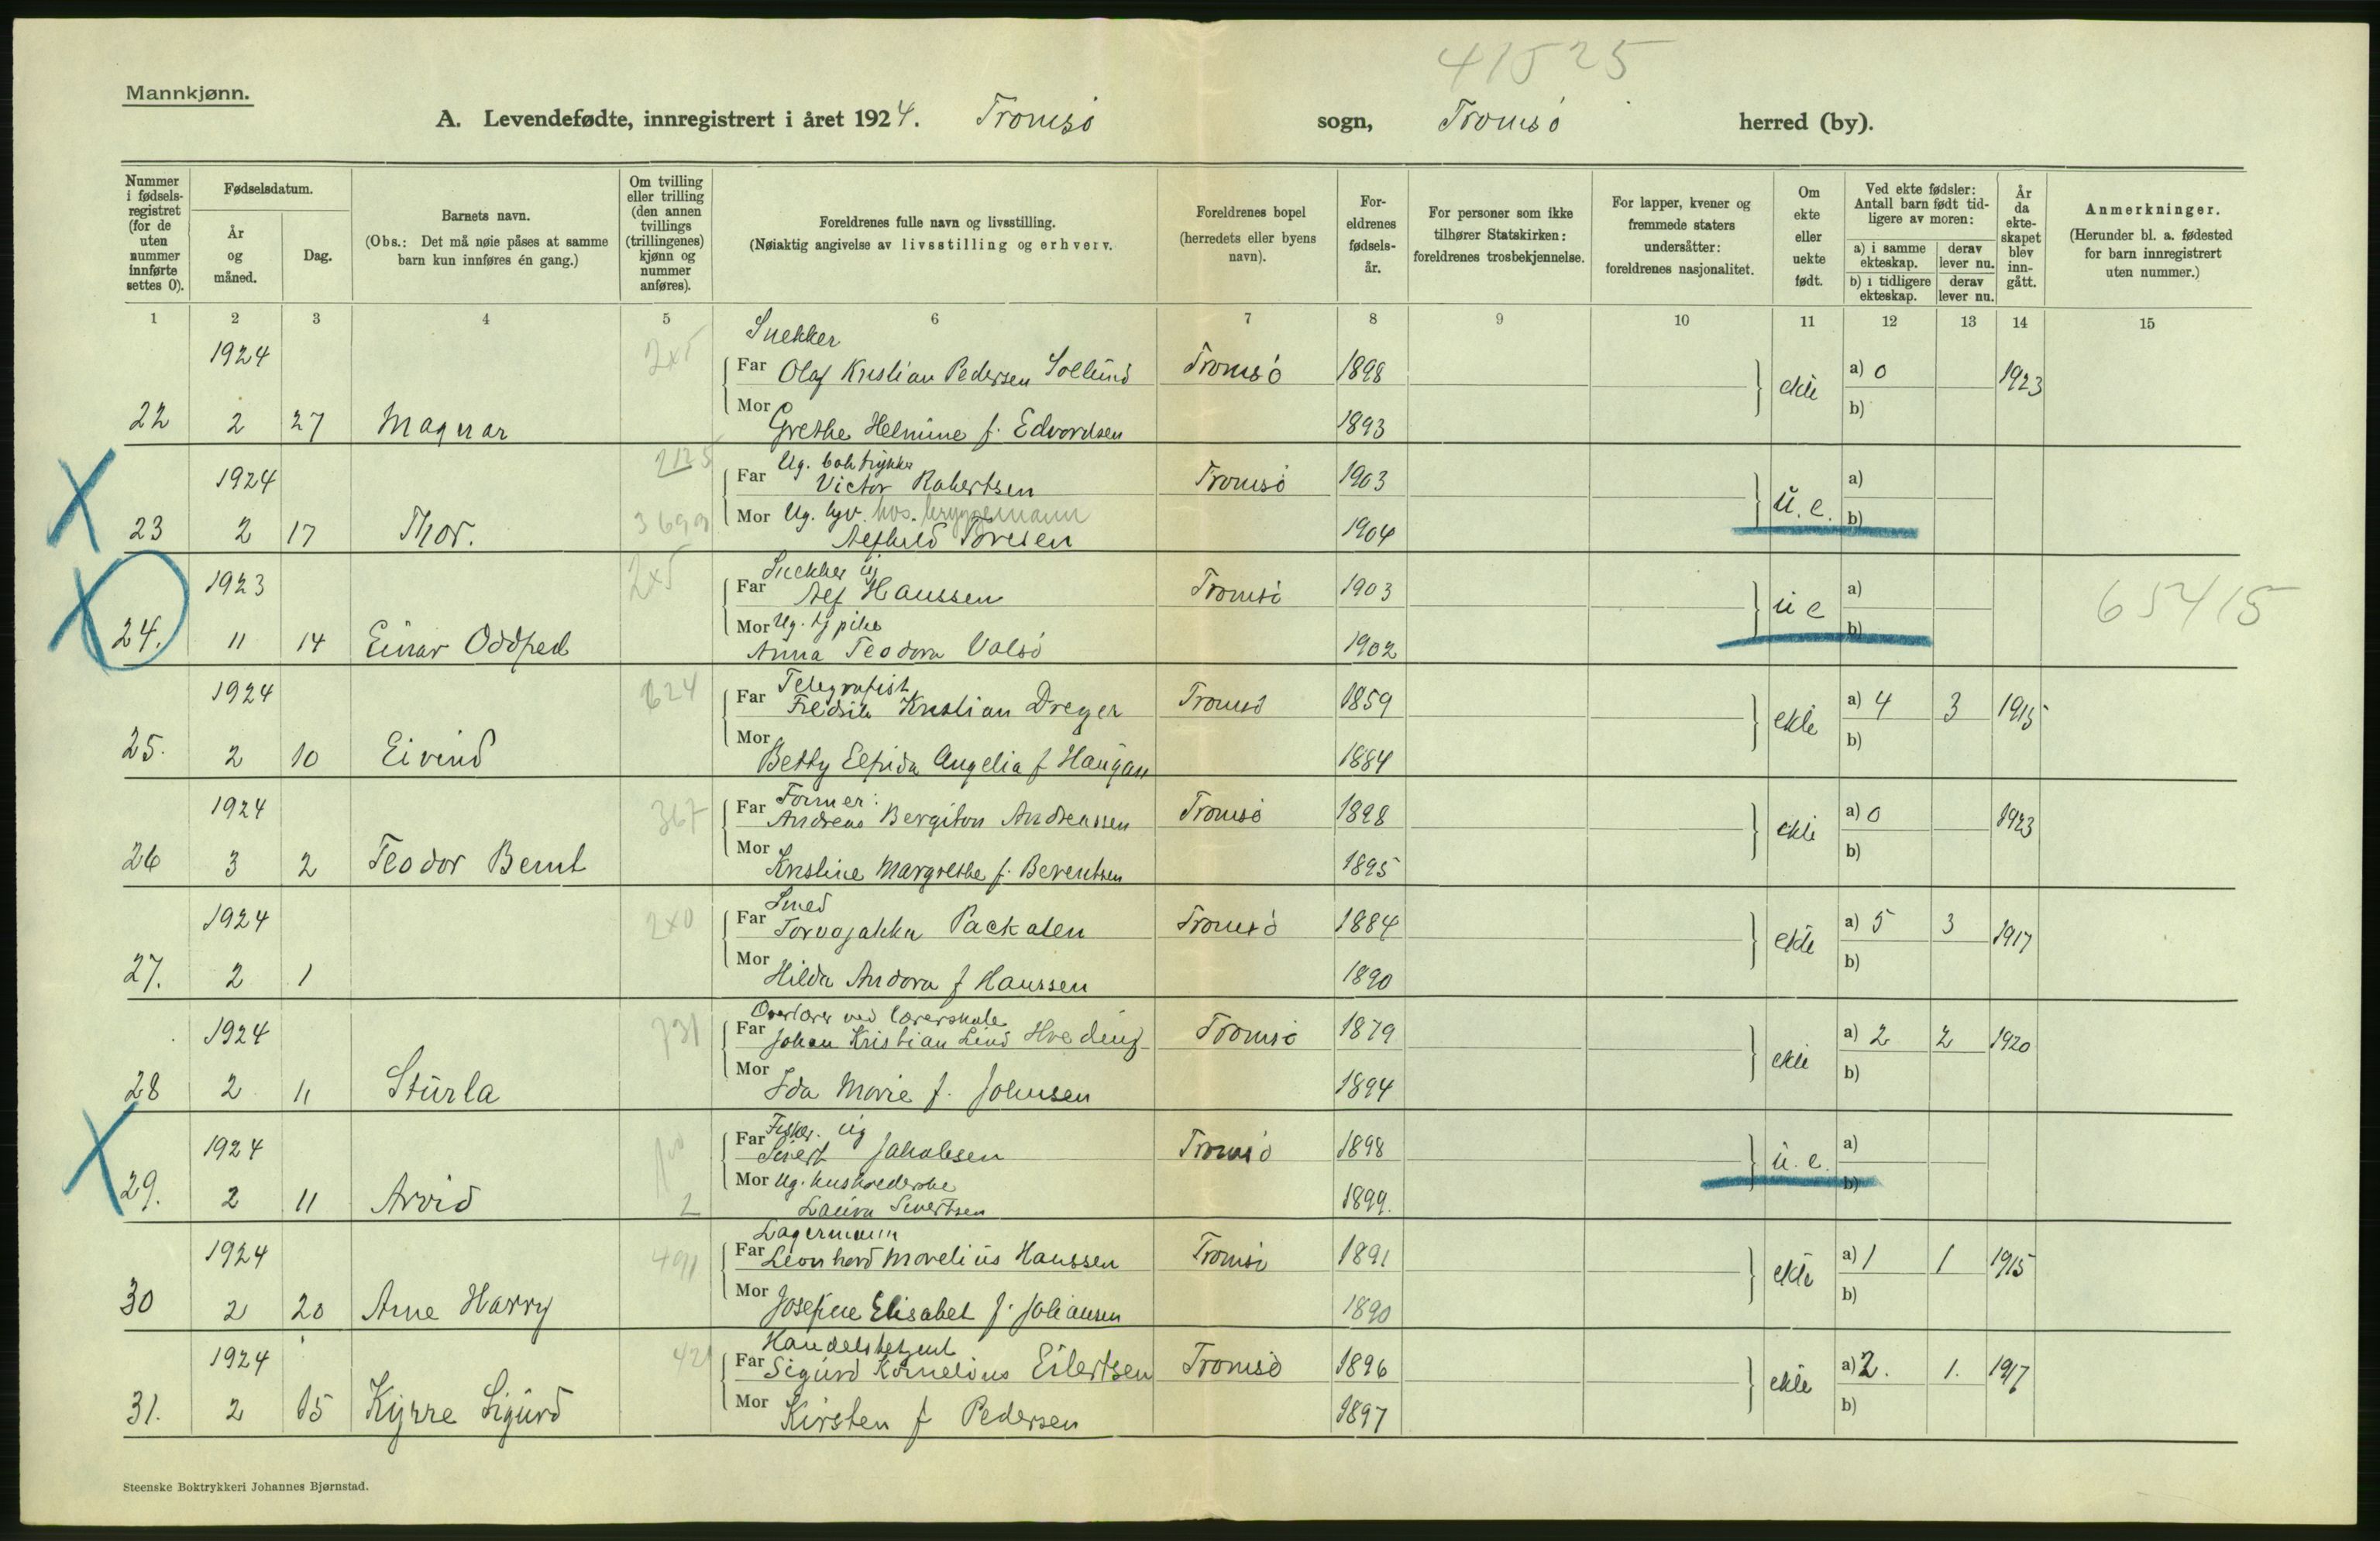 41525
Mannkjønn.
A. Levendefødte, innregistrert i året 1924. Tromsø sogn, Tromsø herred (by).
Nummer i fødselsregistret (for de uten nummer innførte settes 0).
Fødselsdatum.
År og måned.
Dag.
Barnets navn.
(Obs.: Det må nøie påses at samme barn kun innføres én gang.)
Om tvilling eller trilling (den annen tvillings (trillingenes) kjønn og nummer anføres).
Foreldrenes fulle navn og livsstilling.
(Nøiaktig angivelse av livsstilling og erhverv.
Foreldrenes bopel (herredets eller byens navn).
Foreldrenes fødselsår.
For personer som ikke tilhører Statskirken: foreldrenes trosbekjennelse.
For lapper, kvener og fremmede staters undersåtter: foreldrenes nasjonalitet.
Om ekte eller uekte født.
Ved ekte fødsler: Antall barn født tidligere av moren:
a) i samme ekteskap. derav lever nu.
b) i tidligere ekteskap. derav lever nu.
År da ekteskapet blev inngått.
Anmerkninger.
(Herunder bl. a. fødested for barn innregistrert uten nummer.)
1 2 3 4 5 6 7 8 9 10 11 12 13 14 15
Snekker
1924 2x5 Far Olaf Kristian Pedersen Sollund Tromsø 1898 ekte a) 0 1923
22 2 27 Magnar Mor Grethe Helmine f. Edvardsen 1893 b)
Ug. boktrykker
1924 2125 Far Victor Robertsen Tromsø 1903 u.e. a)
Mor Ug. tjv. hos. bryggemann
23 2 17 Thor. Alfhild Toresen 1904 b)
Snekker ug
1923 2x5 Far Alf Hanssen Tromsø 1903 u e a) 65415
Mor Ug. tj pike
24. 11 14 Einar Oddfred Anna Teodora Valsø 1902 b)
Telegrafist
1924 624 Far Fredrik Kristian Dreyer Tromsø 1859 ekte a) 4 3 1915
25. 2 10 Eivind Mor Betty Elfrida Angelia f Haugan 1884 b)
Former.
1924 367 Far Andreas Bergiton Andreassen Tromsø 1898 ekte a) 0 1923
26 3 2 Teodor Bernt Mor Kristine Margrethe f. Berentsen 1895 b)
Smed
1924 2x0 Far Packalen Tromsø 1884 ekte a) 5 3 1917
27. 2 1 Mor Hilda Andora f Hanssen 1890 b)
Overlærer ved lærerskole
1924 731 Far Johan Kristian Lind Hveding Tromsø 1879 ekte a) 2 2 1920
28 2 11 Sturla Mor Ida Marie f. Johnsen 1894 b)
Fisker. ug
1924 Far Sivert Jakobsen Tromsø 1898 u.e. a)
Mor Ug. husholderske
29. 2 11 Arvid 2 Laura Sivertsen 1899. b)
Lagermann
1924 491 Far Leonhard Marelius Hanssen Tromsø 1891 ekte a) 1 1 1915
30 2 20 Arne Harry Mor Josefine Elisabet f. Johansen 1890 b)
Handelsbetjent
1924 421 Far Sigurd Kornelius Eilertsen Tromsø 1896 ekte a) 2. 1. 1917
31. 2 15 Kyrre Sigurd Mor Kirsten f Pedersen 1897 b)
Steenske Boktrykkeri Johannes Bjørnstad.